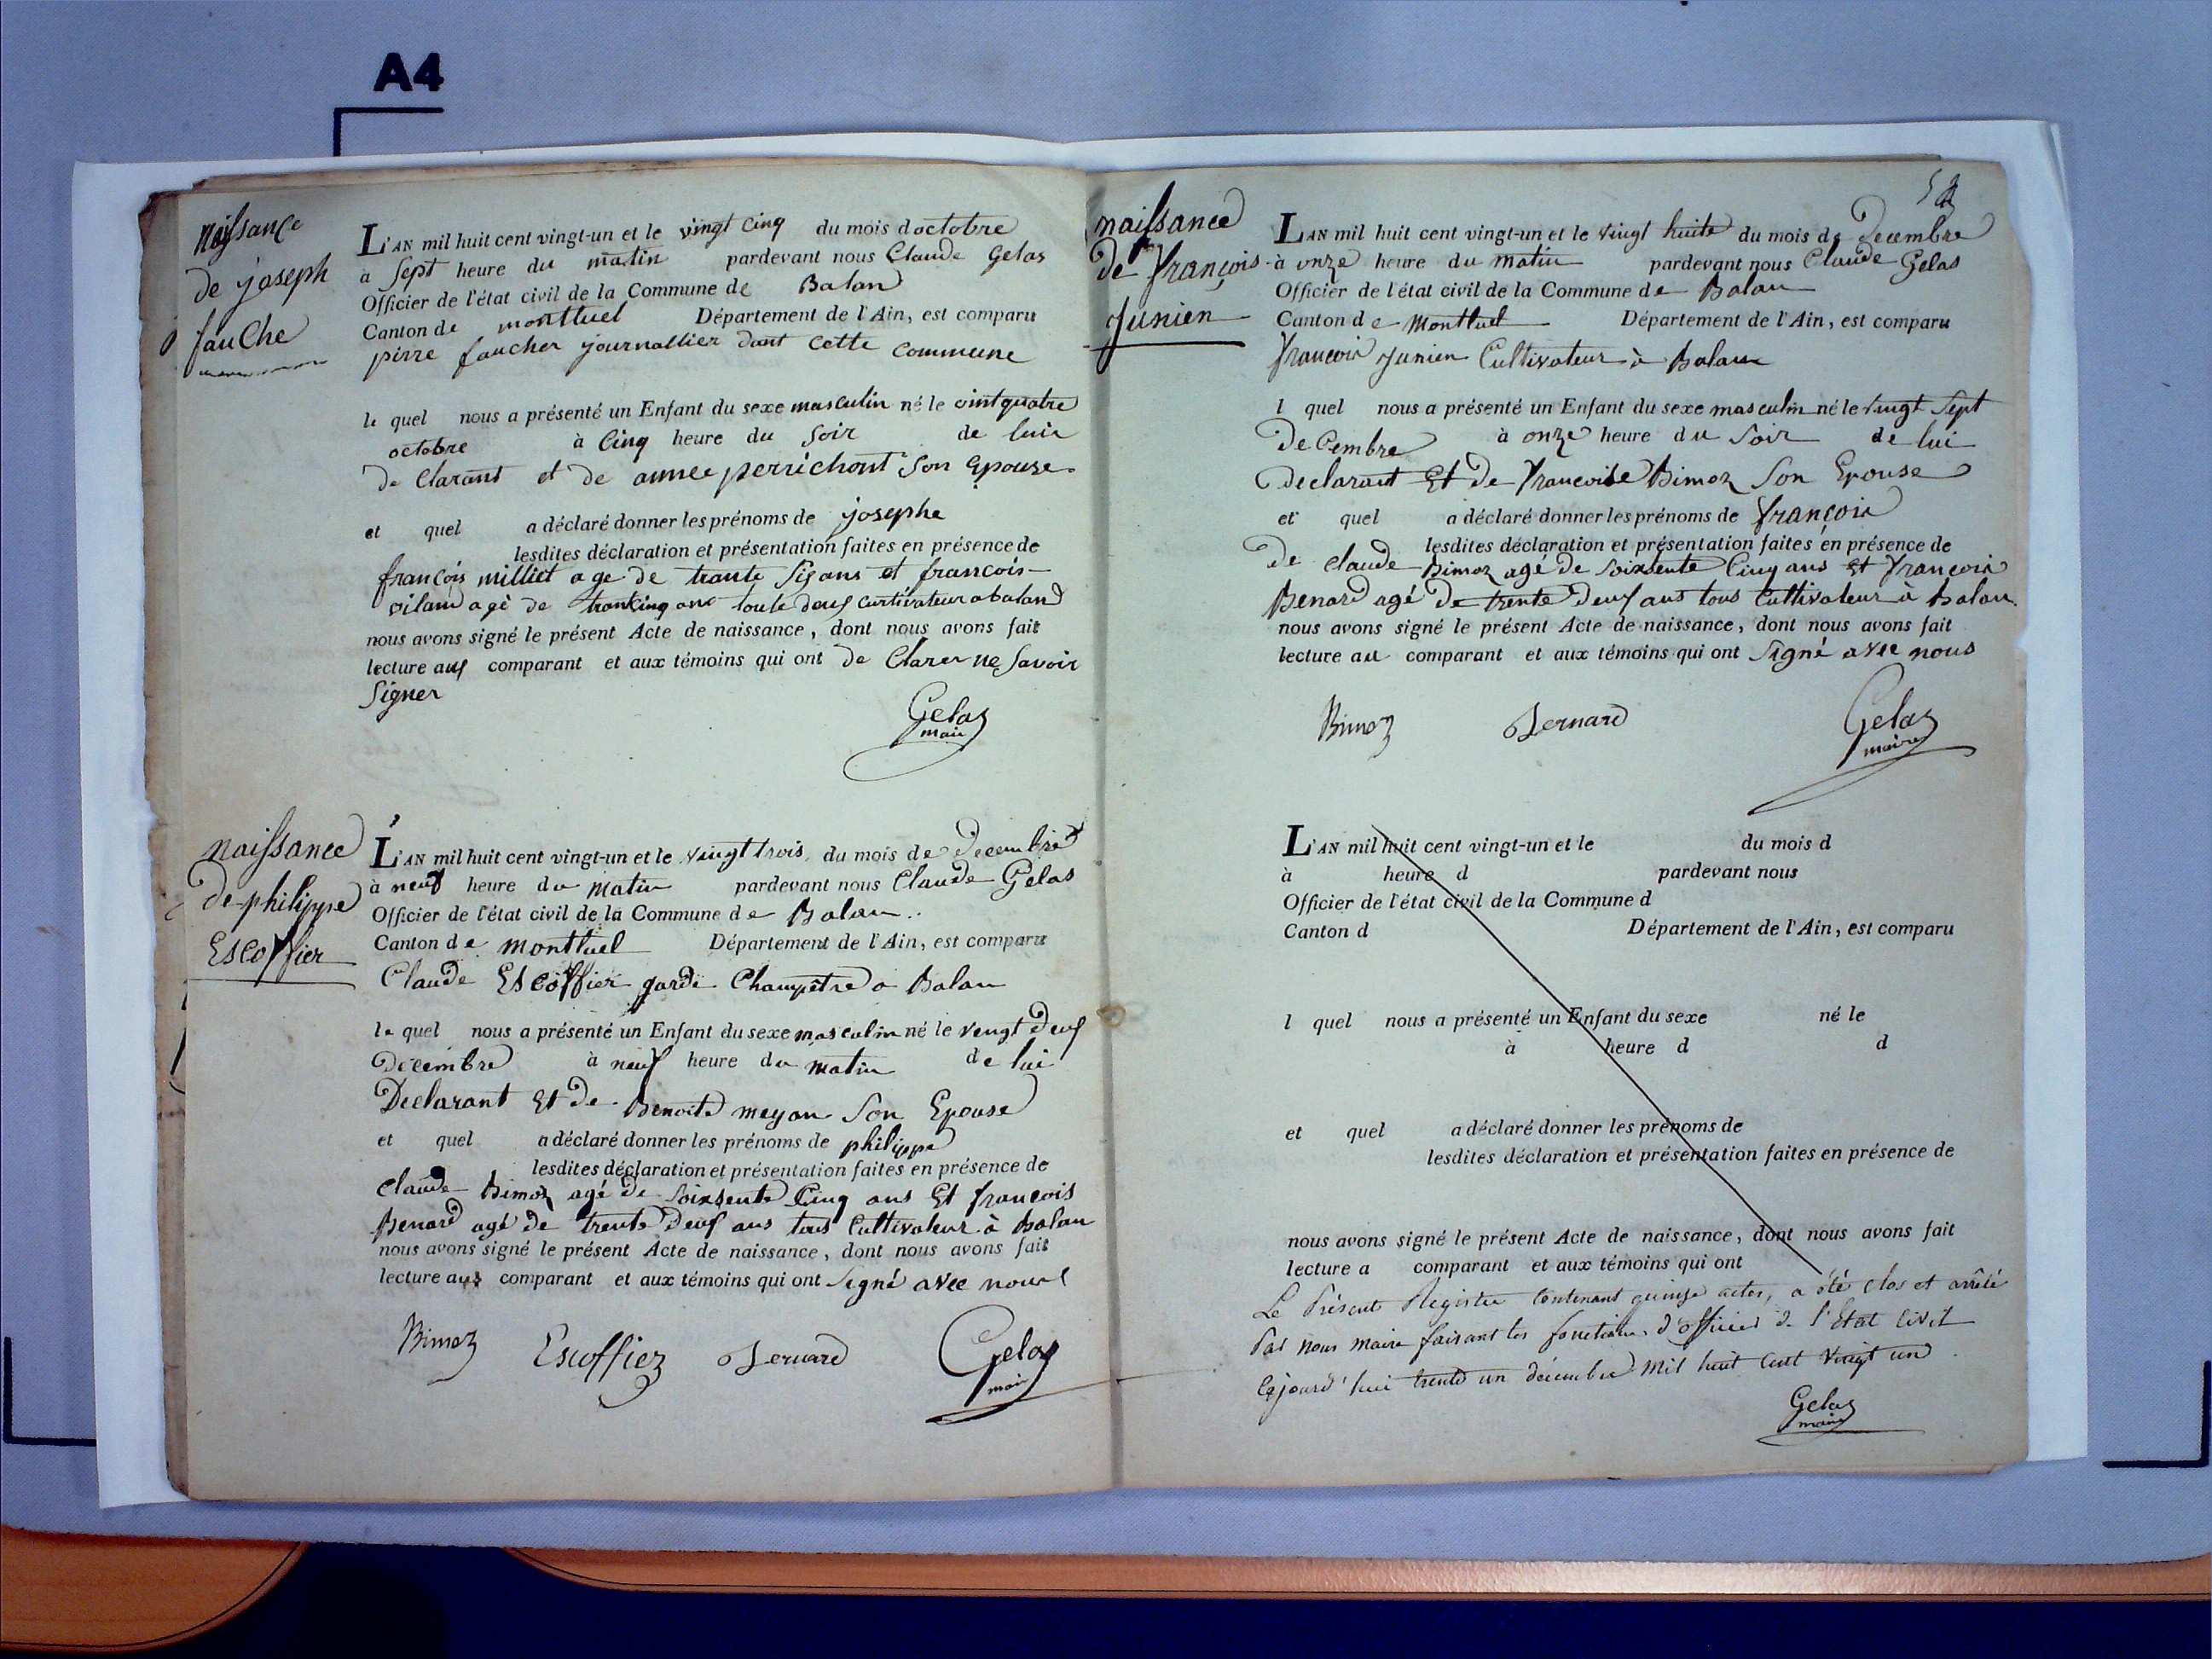 A4
naissance
de joseph
fauche
L'AN mil huit cent vingt-un et le vingt cinq du mois doctobre
à sept heure du matin pardevant nous Claude Gelas
Officier de l'état civil de la Commune de Balan
Canton de montluel Département de l'Ain, est comparu
pirre faucher journallier dant cette commune
le quel nous a présenté un Enfant du sexe masculin né le vintquatre
octobre à cinq heure du soir de luis
de Clarant et de annee perrichont son epouse
et quel a déclaré donner les prénoms de josephe
lesdites déclaration et présentation faites en présence de
françois milliet age de trante sis ans et francois
viland agé de trankinq ans toute deus curtivateur a baland
nous avons signé le présent Acte de naissance, dont nous avons fait
lecture aus comparant et aux témoins qui ont de Clarer ne savoir
signer
Gelas
mair
naissance
de philippe
Escoffier
L'AN mil huit cent vingt-un et le vingt trois du mois de decembre
à neuf heure du matin pardevant nous Claude Gelas
Officier de l'état civil de la Commune de Balan
Canton de montluel Département de l'Ain, est comparu
Claude Escoffier garde Champêtre a Balan
le quel nous a présenté un Enfant du sexe masculin né le vengt deuf
decembre à neuf heure du matin de lui
Declarant Et de Benoite meyan son Epouse
et quel a déclaré donner les prénoms de philippe
lesdites déclaration et présentation faites en présence de
claude Bimoz agé de soixsente Cinq ans Et françois
Benard agé de trente deuf ans tous Cultivateur à Balan
nous avons signé le présent Acte de naissance, dont nous avons fait
lecture aus comparant et aux témoins qui ont signé avec nous
Bimoz Escoffiez Bernard Gelas
mair
naissance
de françois
Junien
L'AN mil huit cent vingt-un et le vingt huite du mois de decembre
à onze heure du matin pardevant nous Claude Gelas
Officier de l'état civil de la Commune de Balan
Canton de Montluel Département de l'Ain, est comparu
françois Junien Cultivateur à Balan
l quel nous a présenté un Enfant du sexe masculin né le vingt sept
decembre à onze heure du soir de lui
declarant Et de francoise Bimoz son Epouse
et quel a déclaré donner les prénoms de françois
lesdites déclaration et présentation faites en présence de
de claude Bimoz agé de soixsente Cinq ans Et françois
Benard agé de trente deuf ans tous Cultivateur à Balan
nous avons signé le présent Acte de naissance, dont nous avons fait
lecture au comparant et aux témoins qui ont signé avec nous
Bimoz Bernard Gelas
maire
L'AN mil huit cent vingt-un et le du mois d
à heure d pardevant nous
Officier de l'état civil de la Commune d
Canton d Département de l'Ain, est comparu
l quel nous a présenté un Enfant du sexe né le
à heure d d
et quel a déclaré donner les prénoms de
lesdites déclaration et présentation faites en présence de
nous avons signé le présent Acte de naissance, dont nous avons fait
lecture a comparant et aux témoins qui ont
Le Présent Registre contenant quinze actes, a été clos et arrêté
Par nous maire faisant les fonctions d'officier de l'Etat Civil
cejourd'hui trente un décembre mil huit cent vingt un
Gelas
maire